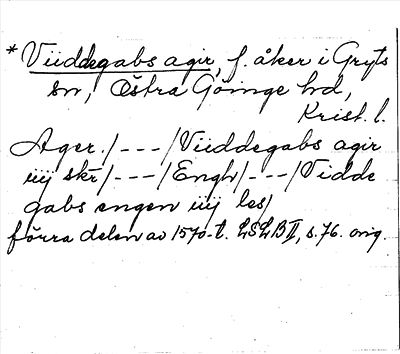 * Viiddegabs agir, f. åker i Gryts
sn, Östra Göinge hd,
Krist. l.
Ager. /---/ Viiddegabs agir
iiij skr /---/ Engh /---/ Vidde
gabs engen iiij les /
förra delen av 1570-t. LSLB II, s. 76. orig.